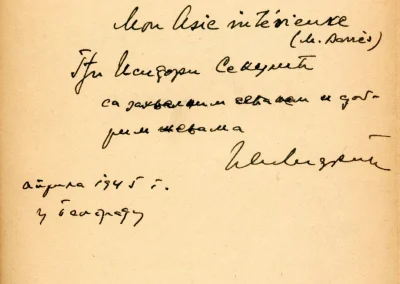 Mon Asie intérieure
(M. Barrès)
Гђи Исидори Секулић
са захвалним сећањем и доб-
рим жељама
априла 1945 г.
у Београду